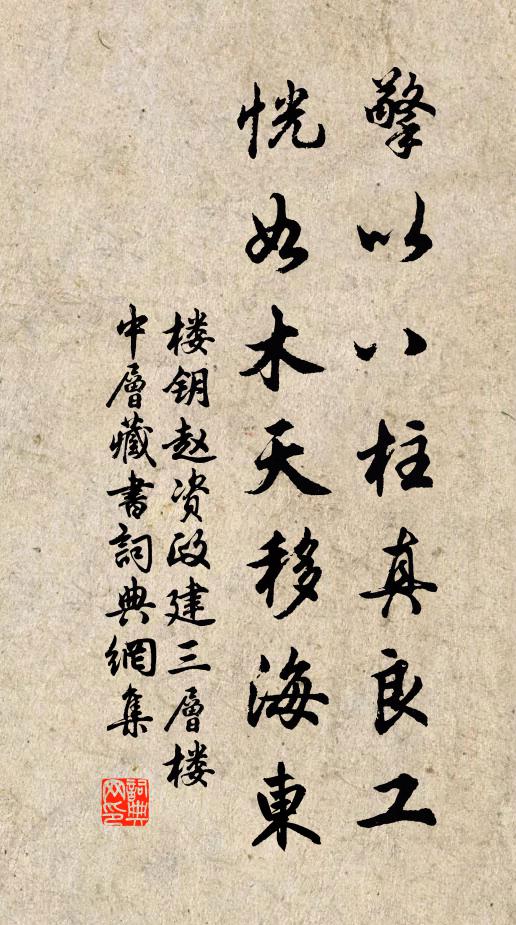 擎以八柱真良工
恍如木天移海東
楼钥赵资政建三層楼
中層藏書詞典網集
詞典网印